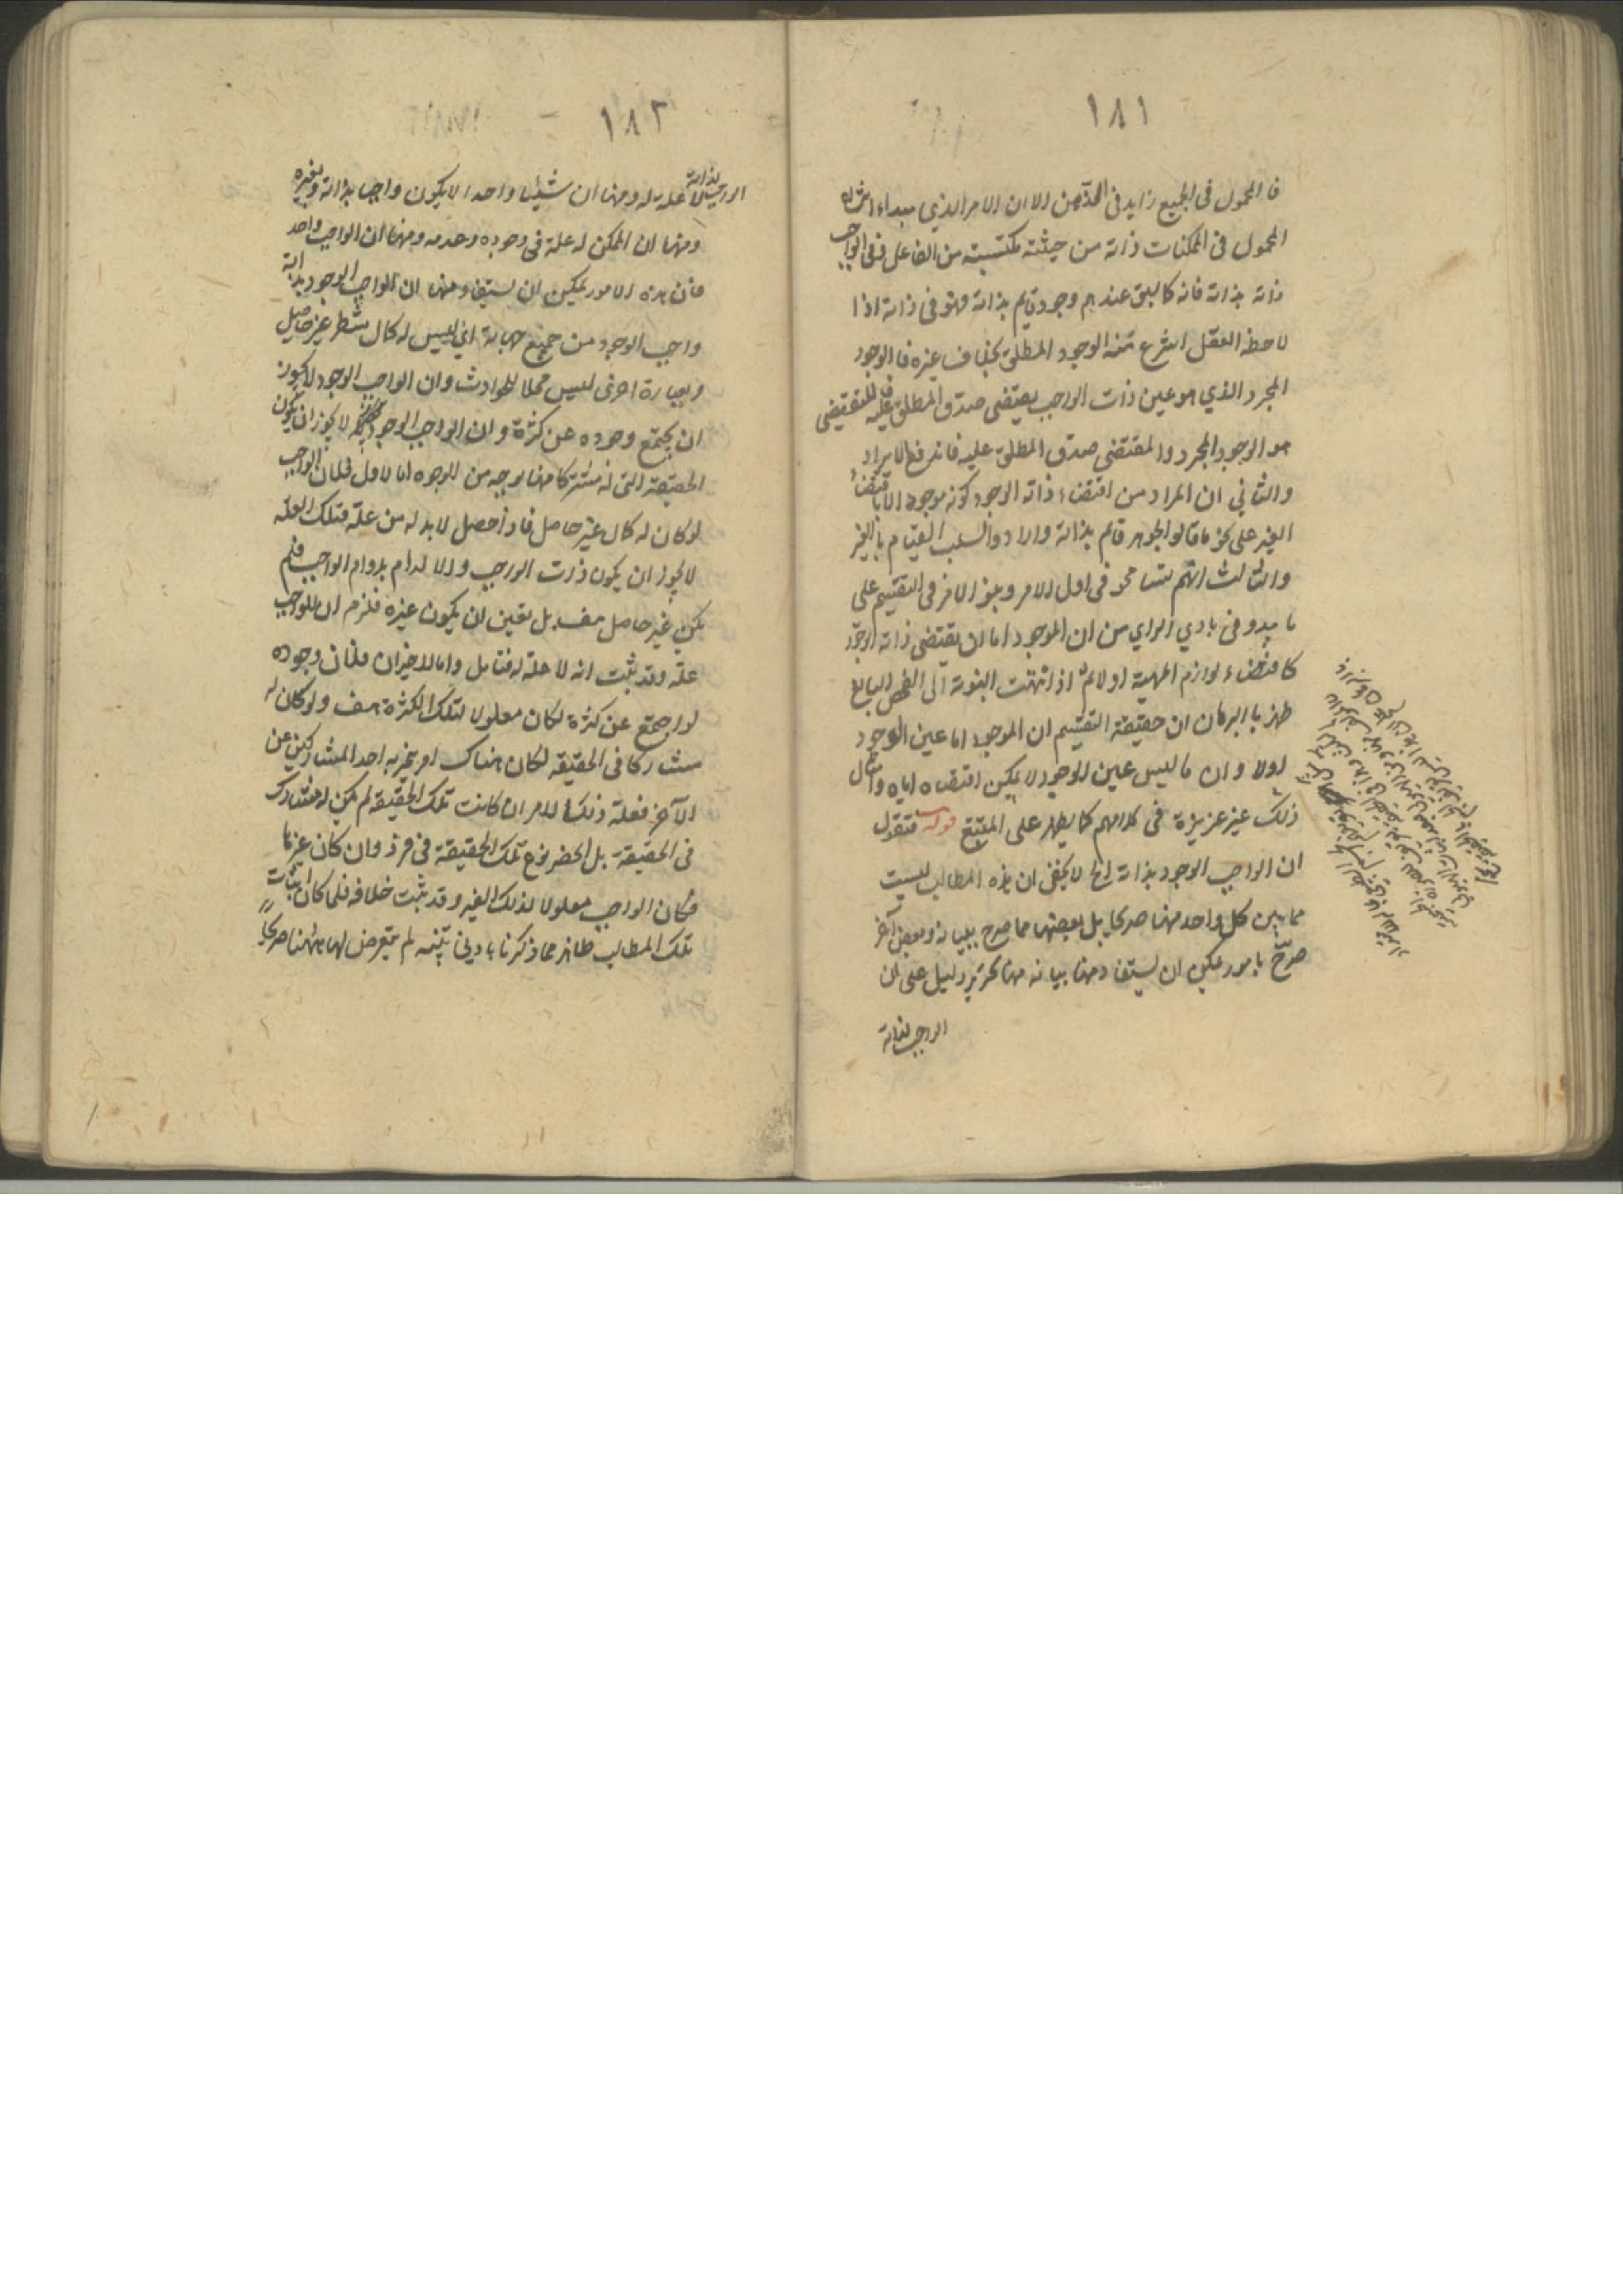 ١٨١
فالمحمول فى الجميع زايد فى الذهن الا ان الامر الذي مبداء انتزاع
المحمول فى الممكنات ذاته من حيثية مكتسبة من الفاعل ففى الواجب
ذاته بذاته فانه كما سبق عندهم وجود قايم بذاته فهو فى ذاته اذا
لاحظه العقل انتزع منه الوجود المطلق بخلاف غيره فالوجود
المجرد الذي هو عين ذات الواجب يقتضى صدق المطلق عليه فالمقتضى
هو الوجود المجرد والمقتضى صدق المطلق عليه فاندفع الايراد
والثاني ان المراد من اقتضاء ذاته الوجود كونه موجودا لا باقتضاء
الغير على نحو ما قالوا الجوهر قائم بذاته وارادوا سلب القيام بالغير
والثالث انهم تسامحوا فى اول الامر وبنوا الامر فى التقسيم على
ما يبدو فى بادي الراي من ان الموجود اما ان يقتضى ذاته الوجود
كاقتضاء لوازم المهية اولا ثم اذا انتهت النوبة الى الفحص البالغ
ظهر بالبرهان ان حقيقة التقسيم ان الموجود اما عين الوجود
اولا وان ما ليس عين الوجود لا يمكن اقتضاه اياه وامثال
ذلك غير عزيزة فى كلامهم كما يظهر على المتتبع قوله فنقول
ان الواجب الوجود بذاته الخ لا يخفى ان هذه المطالب ليست
مما يبين كل واحد منها صريحا بل بعضها مما صرح ببيانه وبعض آخر
صرّح بامور يمكن ان يستفاد منها بيانه منها تحرير دليل على ان
الواجب لذاته
١٨٢
الواجب لذاته لا علة له ومنها ان شيئا واحدا لا يكون واجبا بذاته وبغيره
ومنها ان الممكن له علة فى وجوده وعدمه ومنها ان الواجب واحد
فان هذه الامور يمكن ان يستفاد منها ان الواجب الوجود بذاته
واجب الوجود من جميع جهاته اي ليس له كمال منتظر غير حاصل
وبعبارة اخرى ليس محلا للحوادث وان الواجب الوجود لا يجوز
ان يجتمع وجوده عن كثرة وان الواجب الوجود لا يجوز ان يكون
الحقيقة التى له مشتركا فيها بوجه من الوجوه اما الاول فلان الواجب
لو كان له كمال غير حاصل فاذا حصل لا بد له من علة فتلك العلة
لا يجوز ان يكون ذات الواجب والا لدام بدوام الواجب فلم
يكن غير حاصل هف بل تعين ان يكون غيره فلزم ان للواجب
علة وقد ثبت انه لا علة له فتامل واما الاخيران فلان وجوده
لو اجتمع عن كثرة لكان معلولا لتلك الكثرة هف ولو كان له
مشاركا فى الحقيقه لكان هناك امر يتميز به احد المشاركين عن
الآخر فعلة ذلك الامر ان كانت تلك الحقيقة لم يكن له مشارك
فى الحقيقة بل انحصر نوع تلك الحقيقة فى فرد وان كان غيرها
فكان الواجب معلولا لذلك الغير وقد ثبت خلافه فلما كان اثبات
تلك المطالب ظاهر مما ذكرنا بادنى تنبيه لم يتعرض لها ههنا صريحا